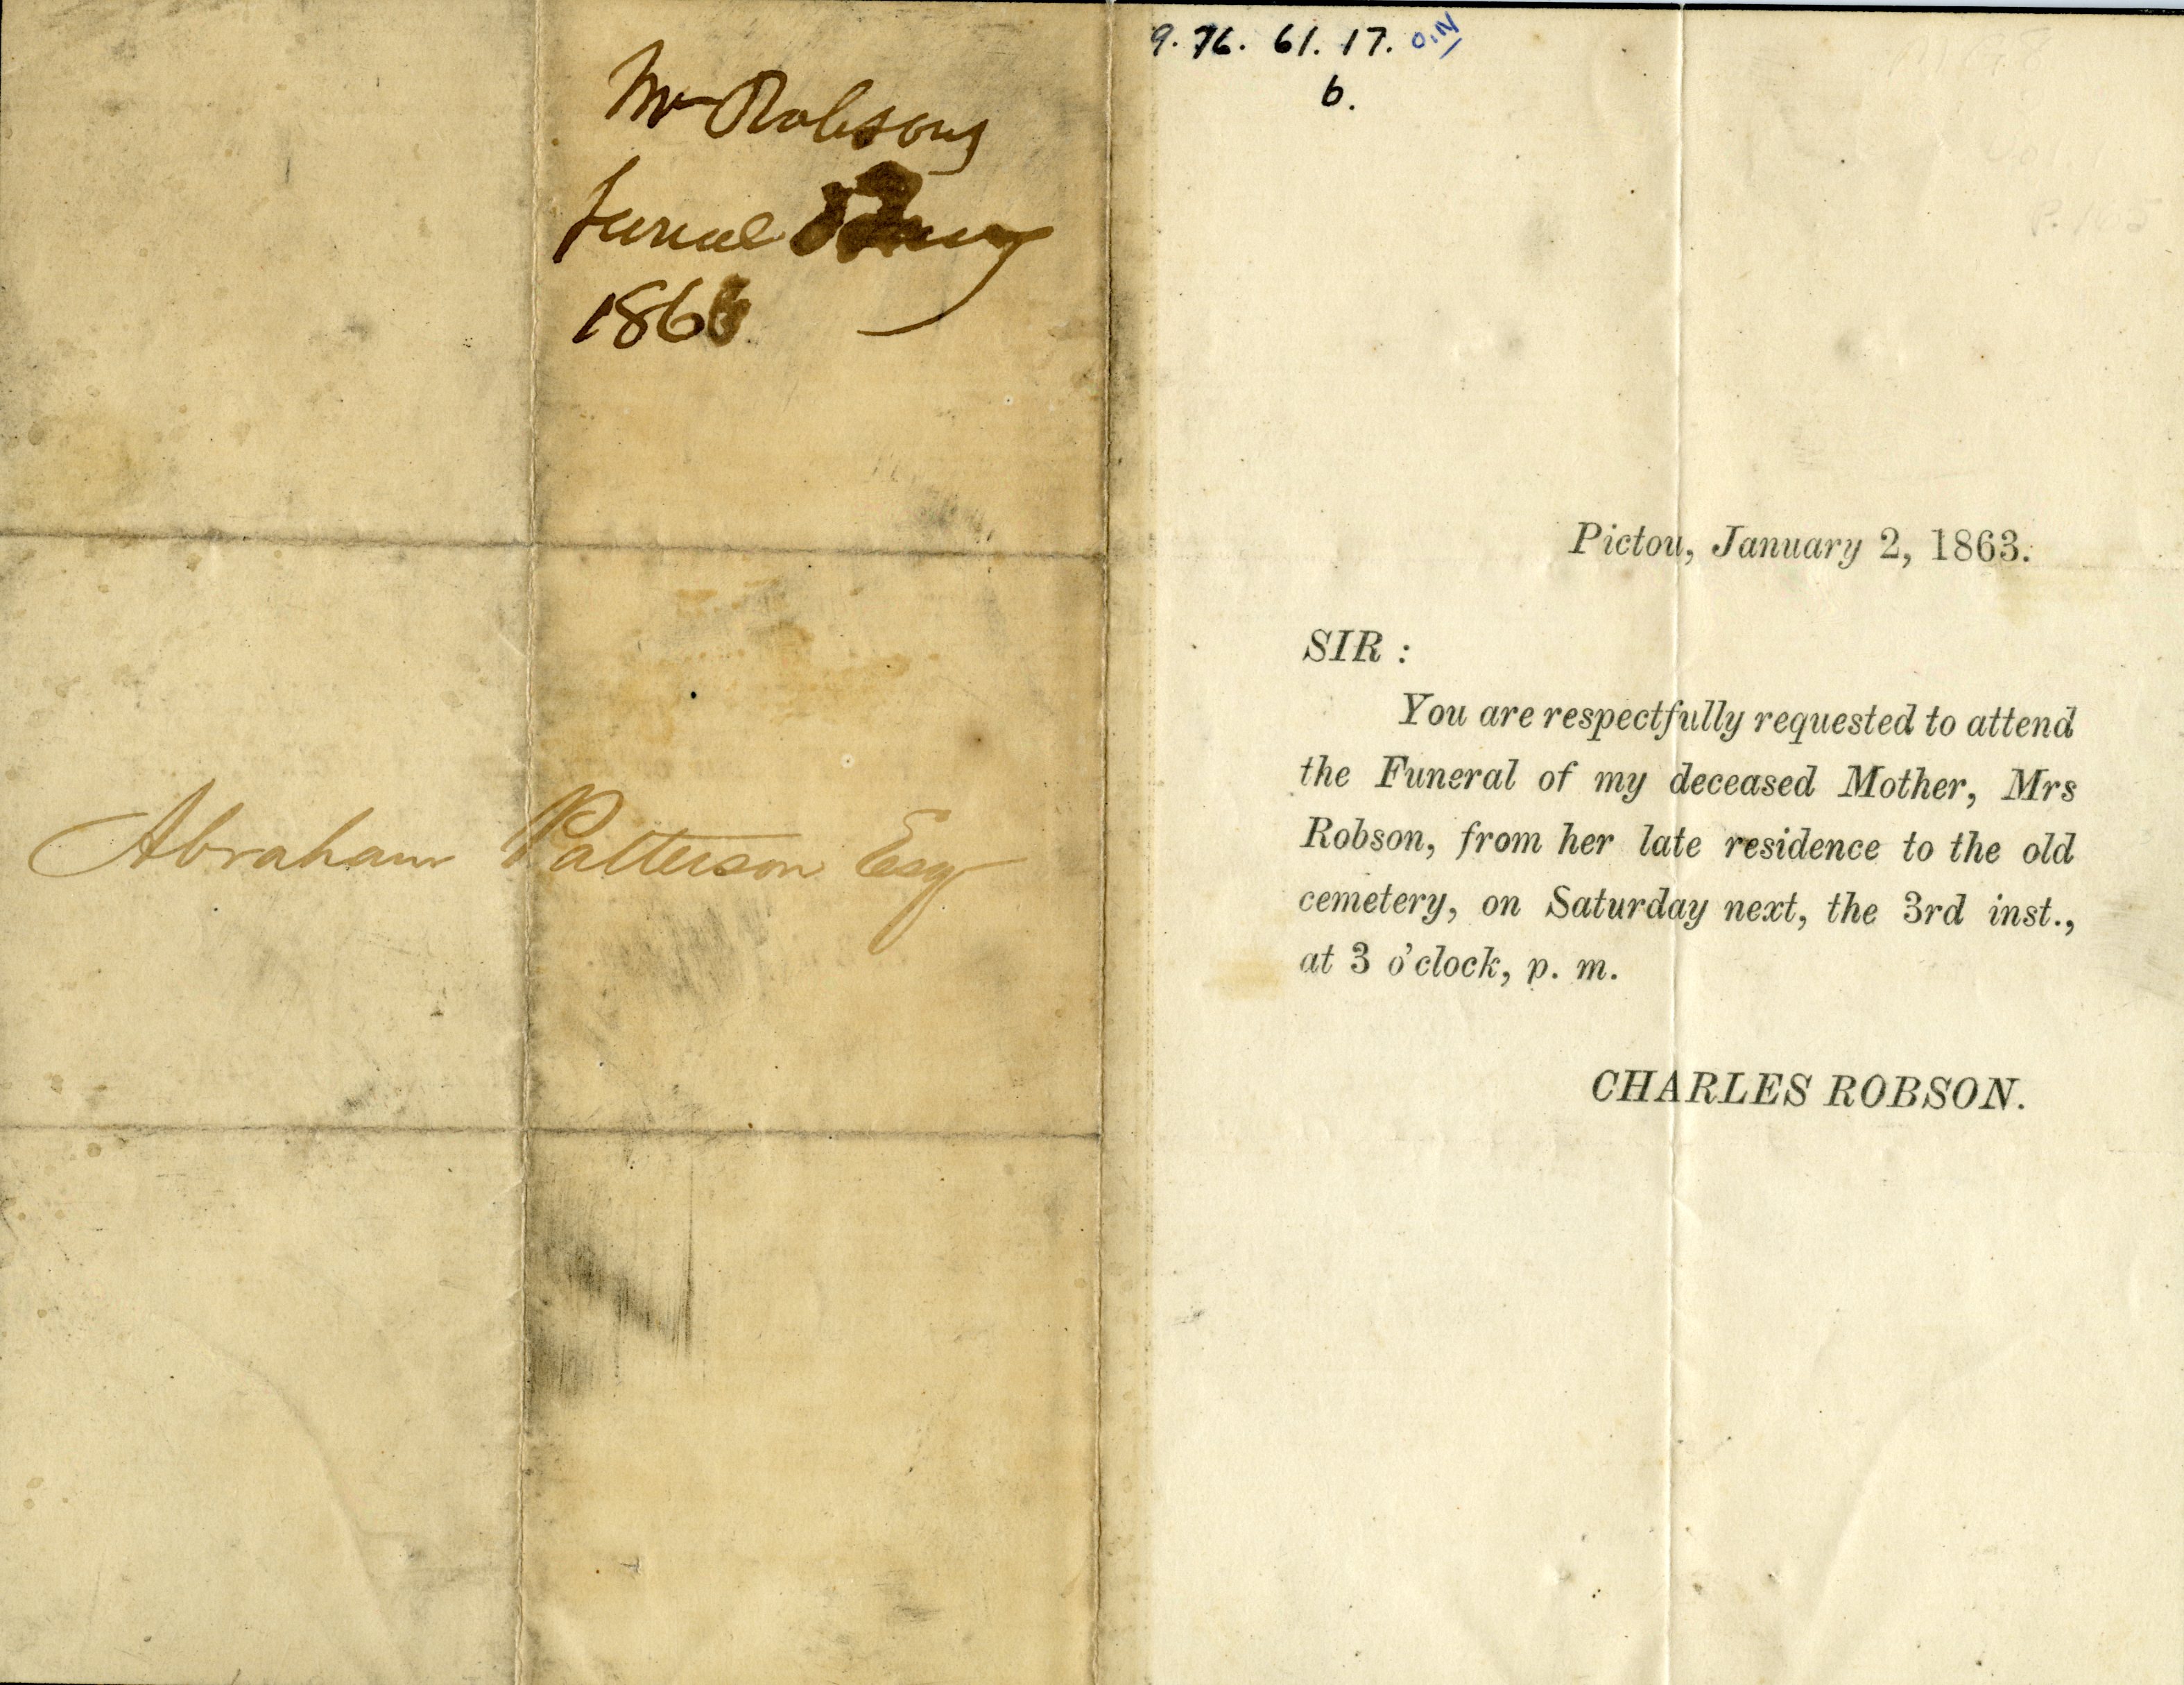 Mrs Robsons
funeral
186
Abraham Patterson Esqr
9. 76. 61. 17. O.IV
b.
P. 165
Pictou, January 2, 1863.
SIR :
You are respectfully requested to attend
the Funeral of my deceased Mother, Mrs
Robson, from her late residence to the old
cemetery, on Saturday next, the 3rd inst.,
at 3 o'clock, p. m.
CHARLES ROBSON.